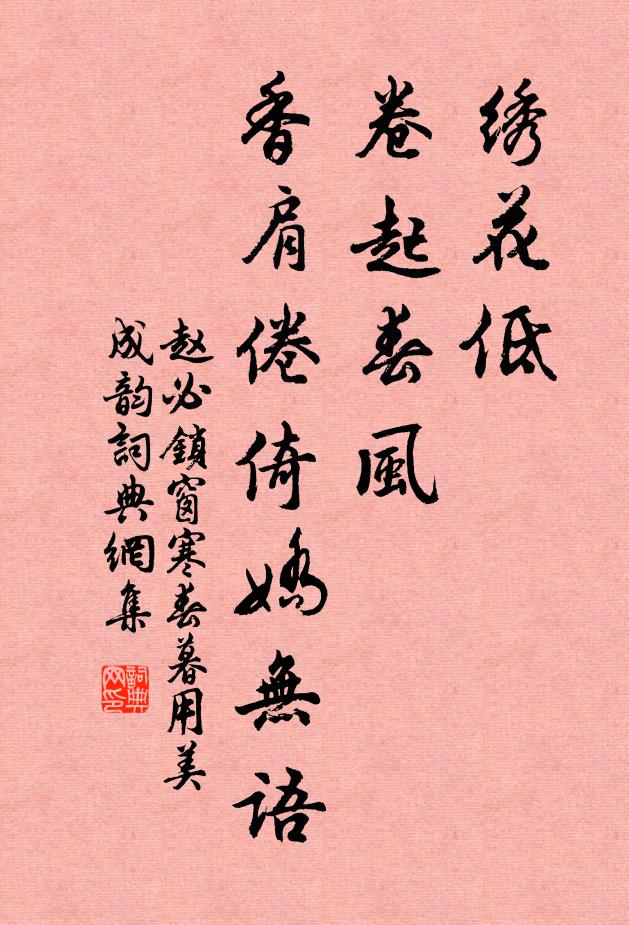 绣花低
卷起春風
香肩倦倚嬌無語
赵必鎖窗寒春暮用美
成韵詞典網集
詞典
网印